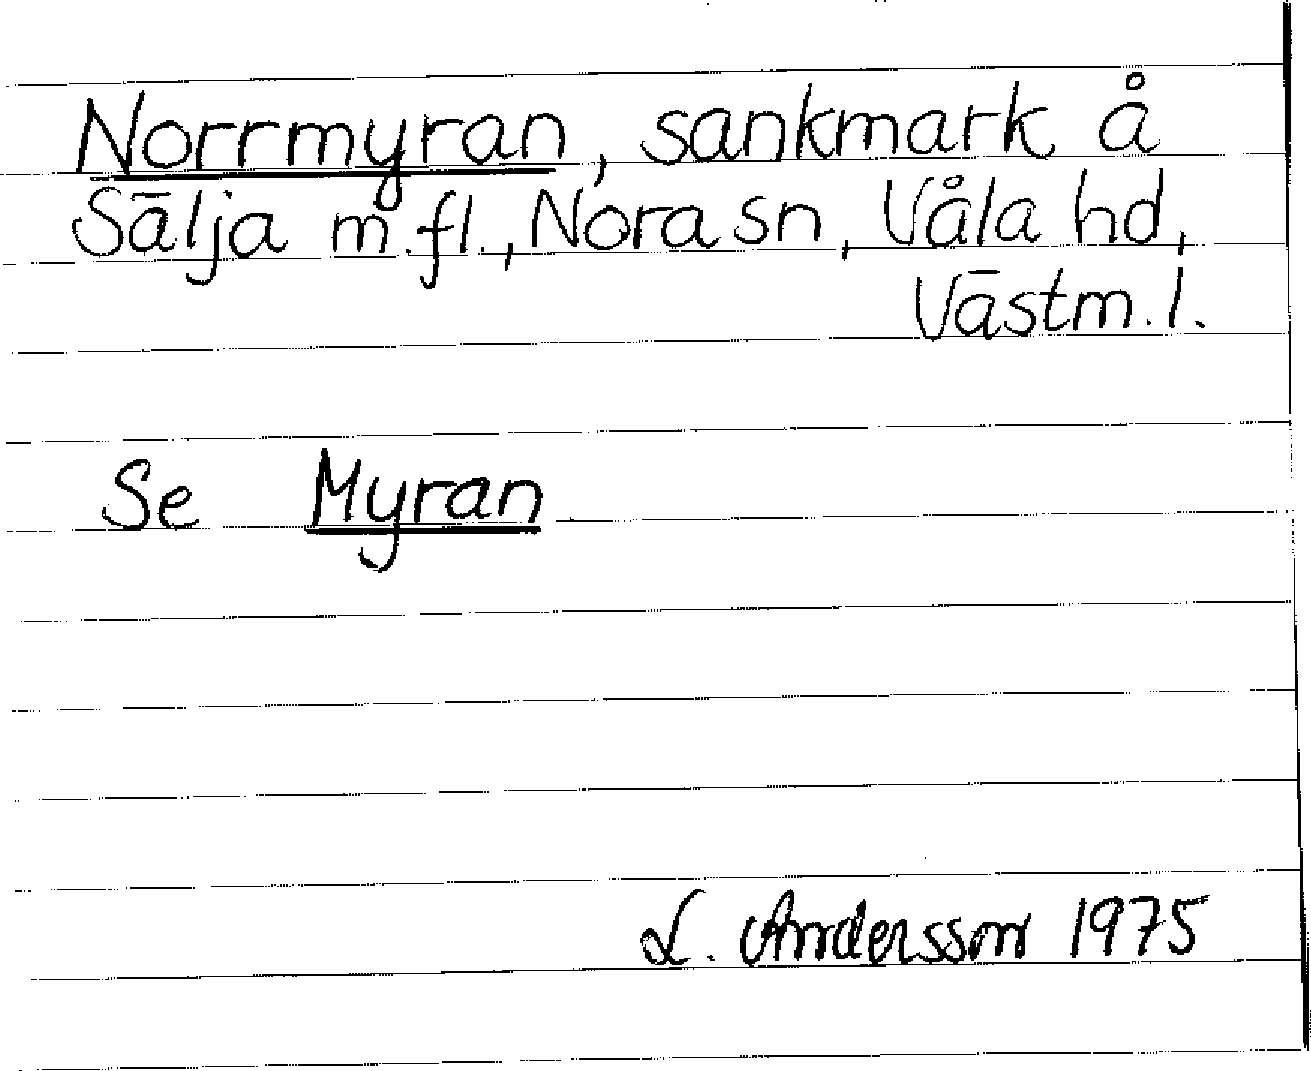 Norrmyran, sankmark å
Sälja m.fl., Nora sn, Våla hd,
Västm. l.
Se Myran
L. Andersson 1975